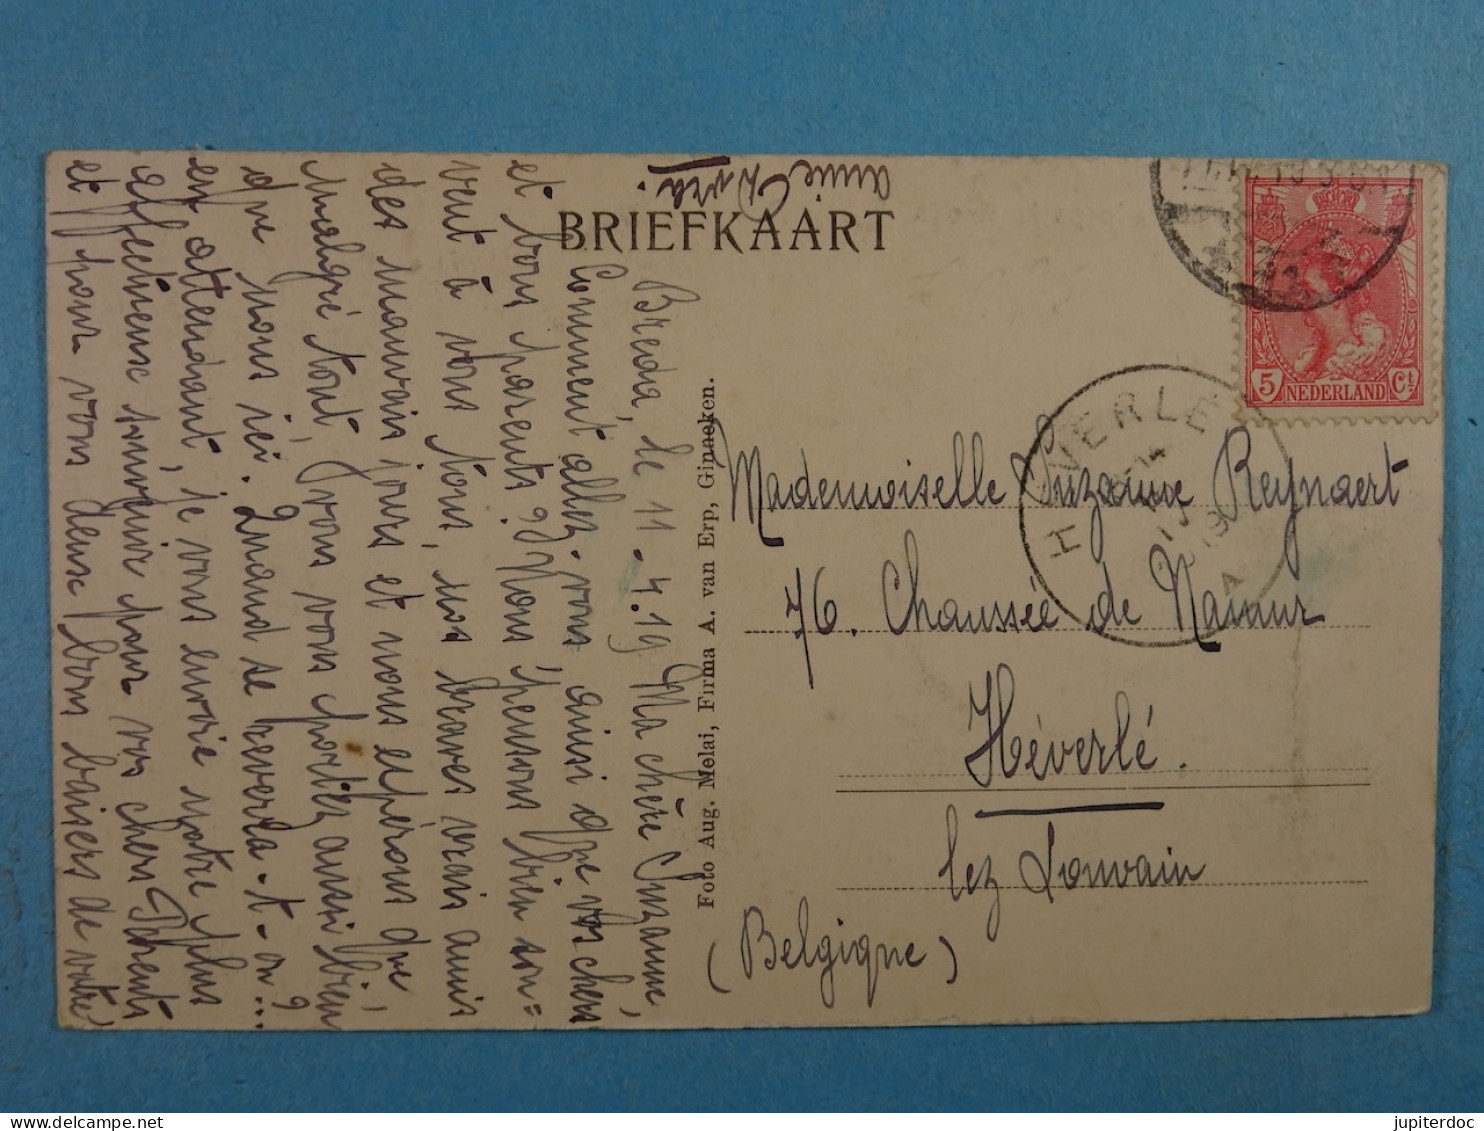 BRIEFKAART
Breda, le 11-4.19 Ma chère Suzanne,
Comment allez-vous ainsi que vos chers
et bons parents? Nous pensons bien sou=
vent à vous tous, nos braves vrais amis
des mauvais jours et nous espérons que,
malgré tout, vous vous portez aussi bien
que nous ici. Quand se reverra-t-on?
en attendant, je vous envoie notre plus
affectueux souvenir pour vos chers Parents
et pour vous deux bons baisers de votre
annie
Foto Aug. Melai, Firma A. van Erp, Ginneken.
5 NEDERLAND Ct
HEVERLE
Mademoiselle Suzanne Reynaert
76. Chaussée de Namur
Héverlé.
lez Louvain
(Belgique)
jupiterdoc